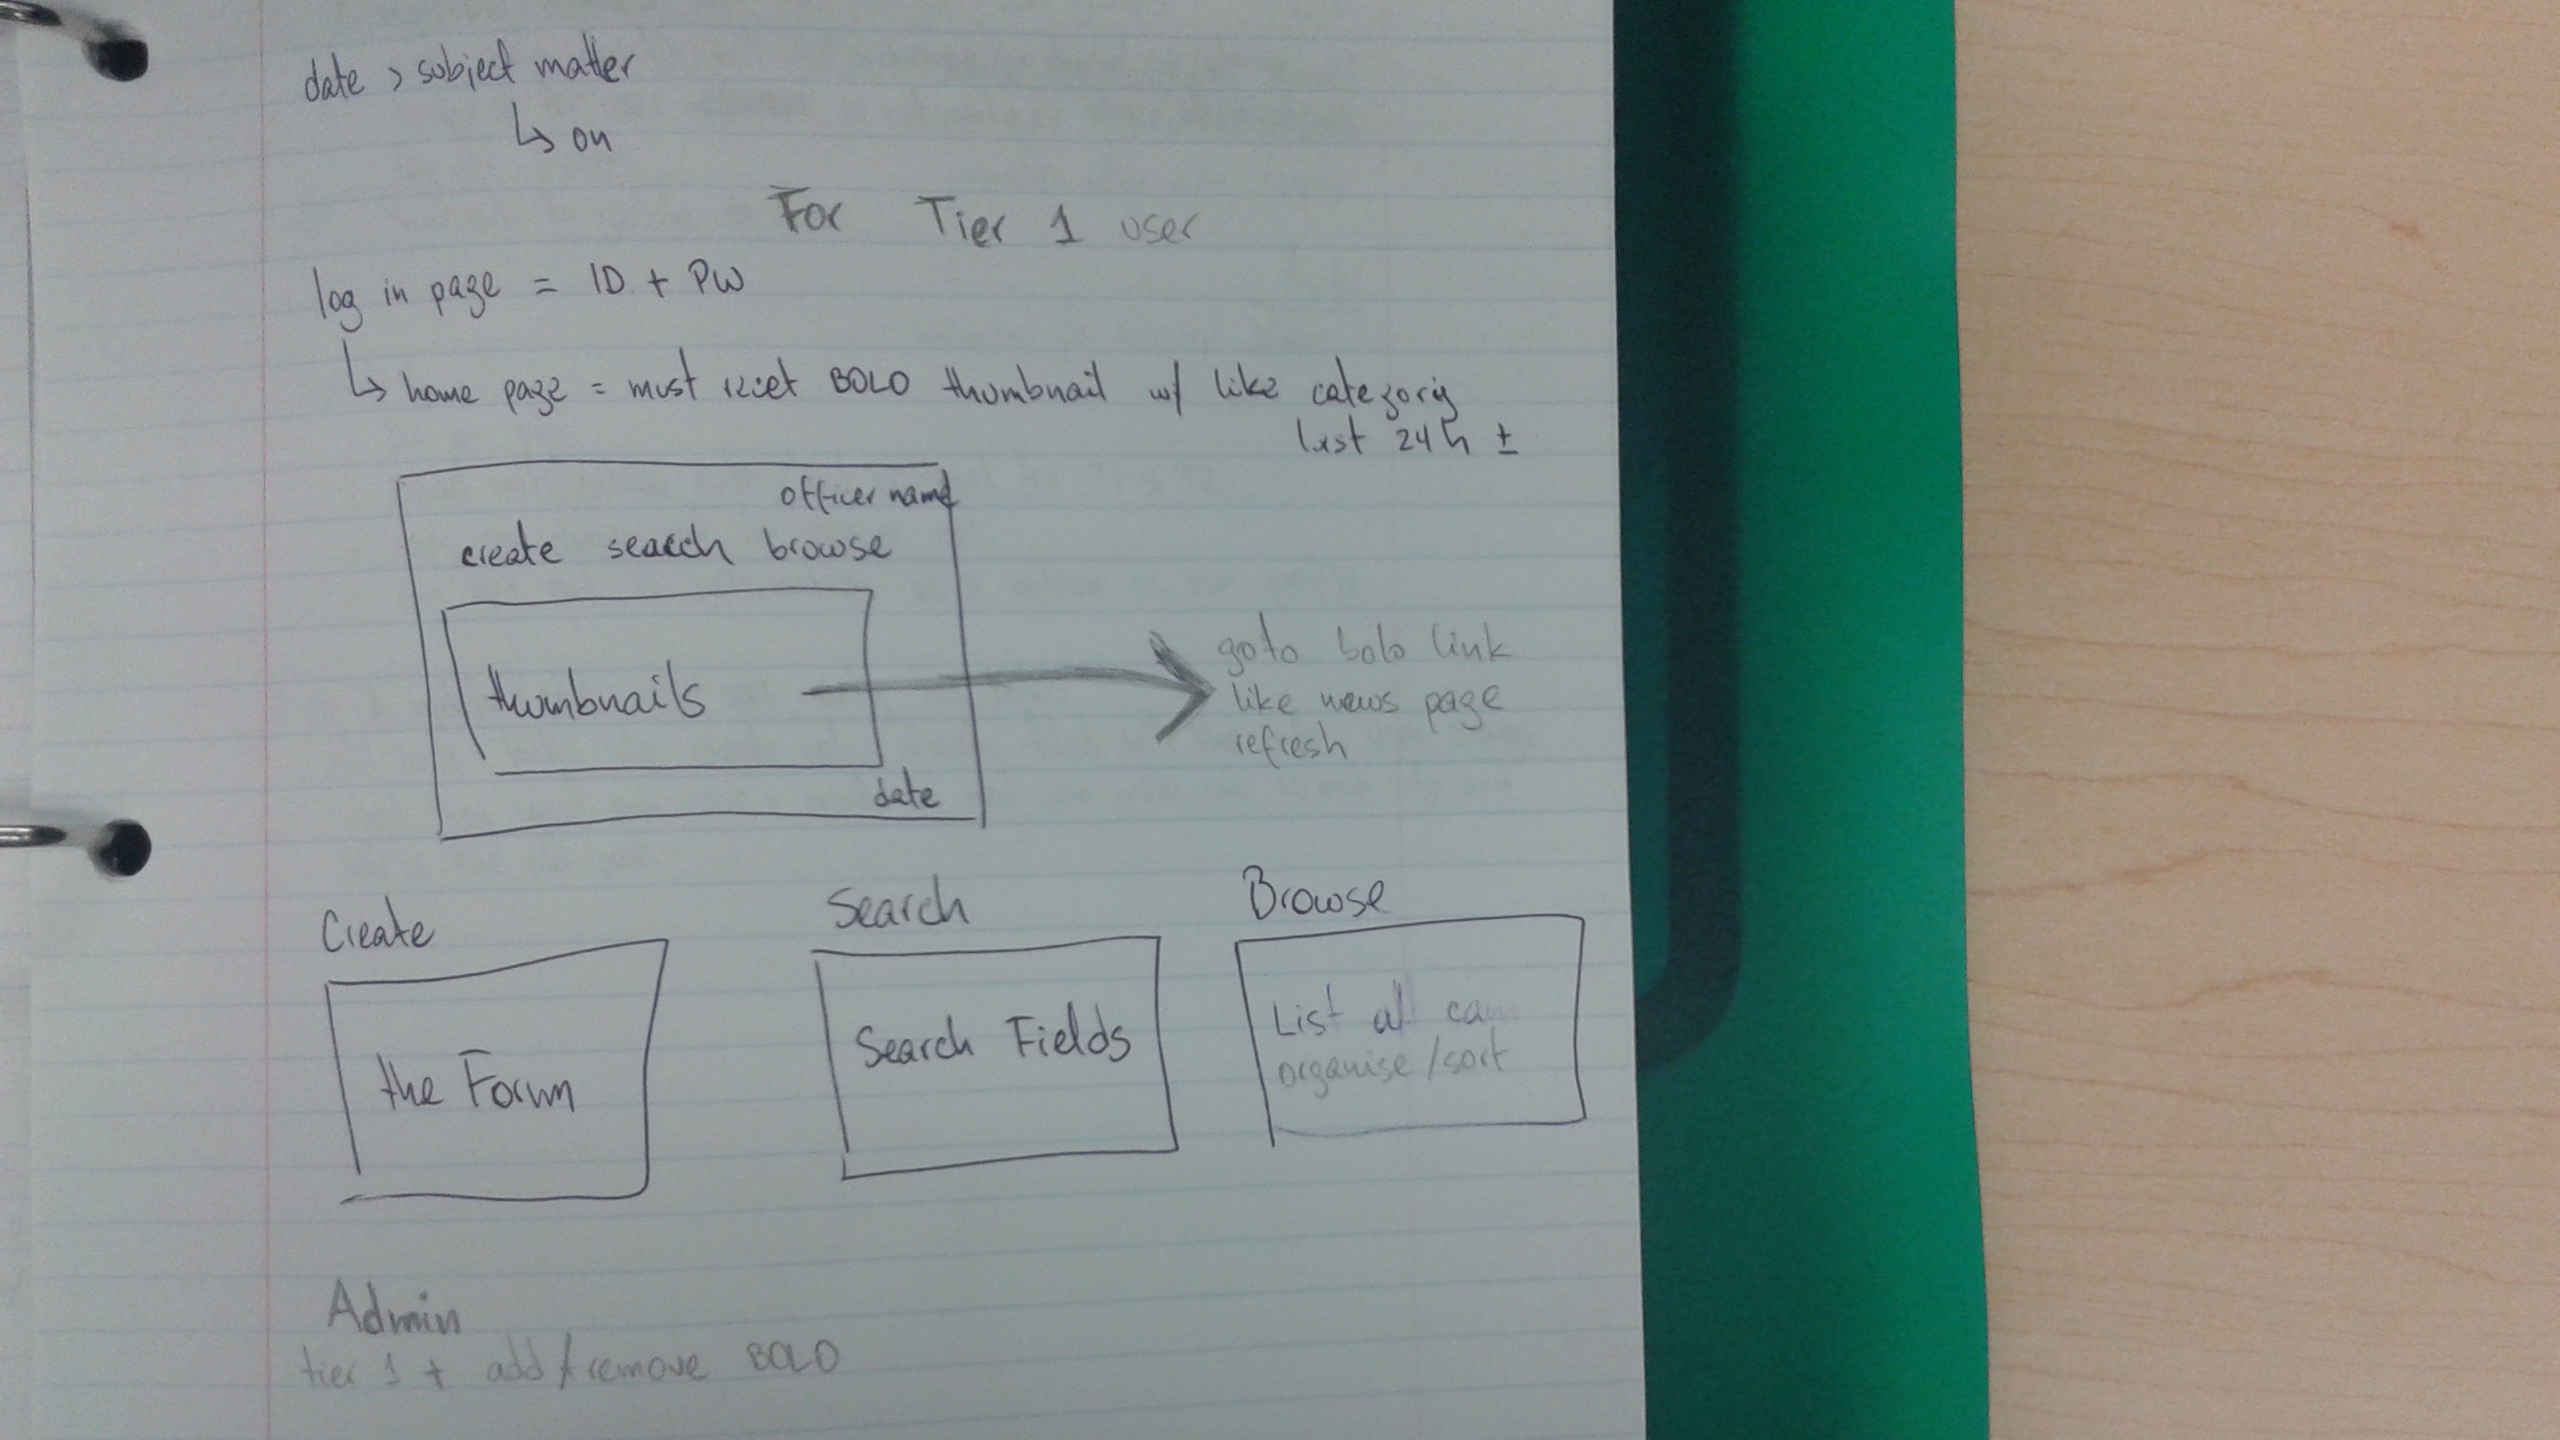 date > subject matter
↳ on
For Tier 1 user
log in page = ID + PW
↳ home page = must recet BOLO thumbnail w/ like categoriy
last 24h ±
officer name
create search browse
thumbnails
date
go to bolo link
like news page
refresh
Create
Search
Browse
the Form
Search Fields
List all can
organise/sort
Admin
tier 1 + add/remove BOLO